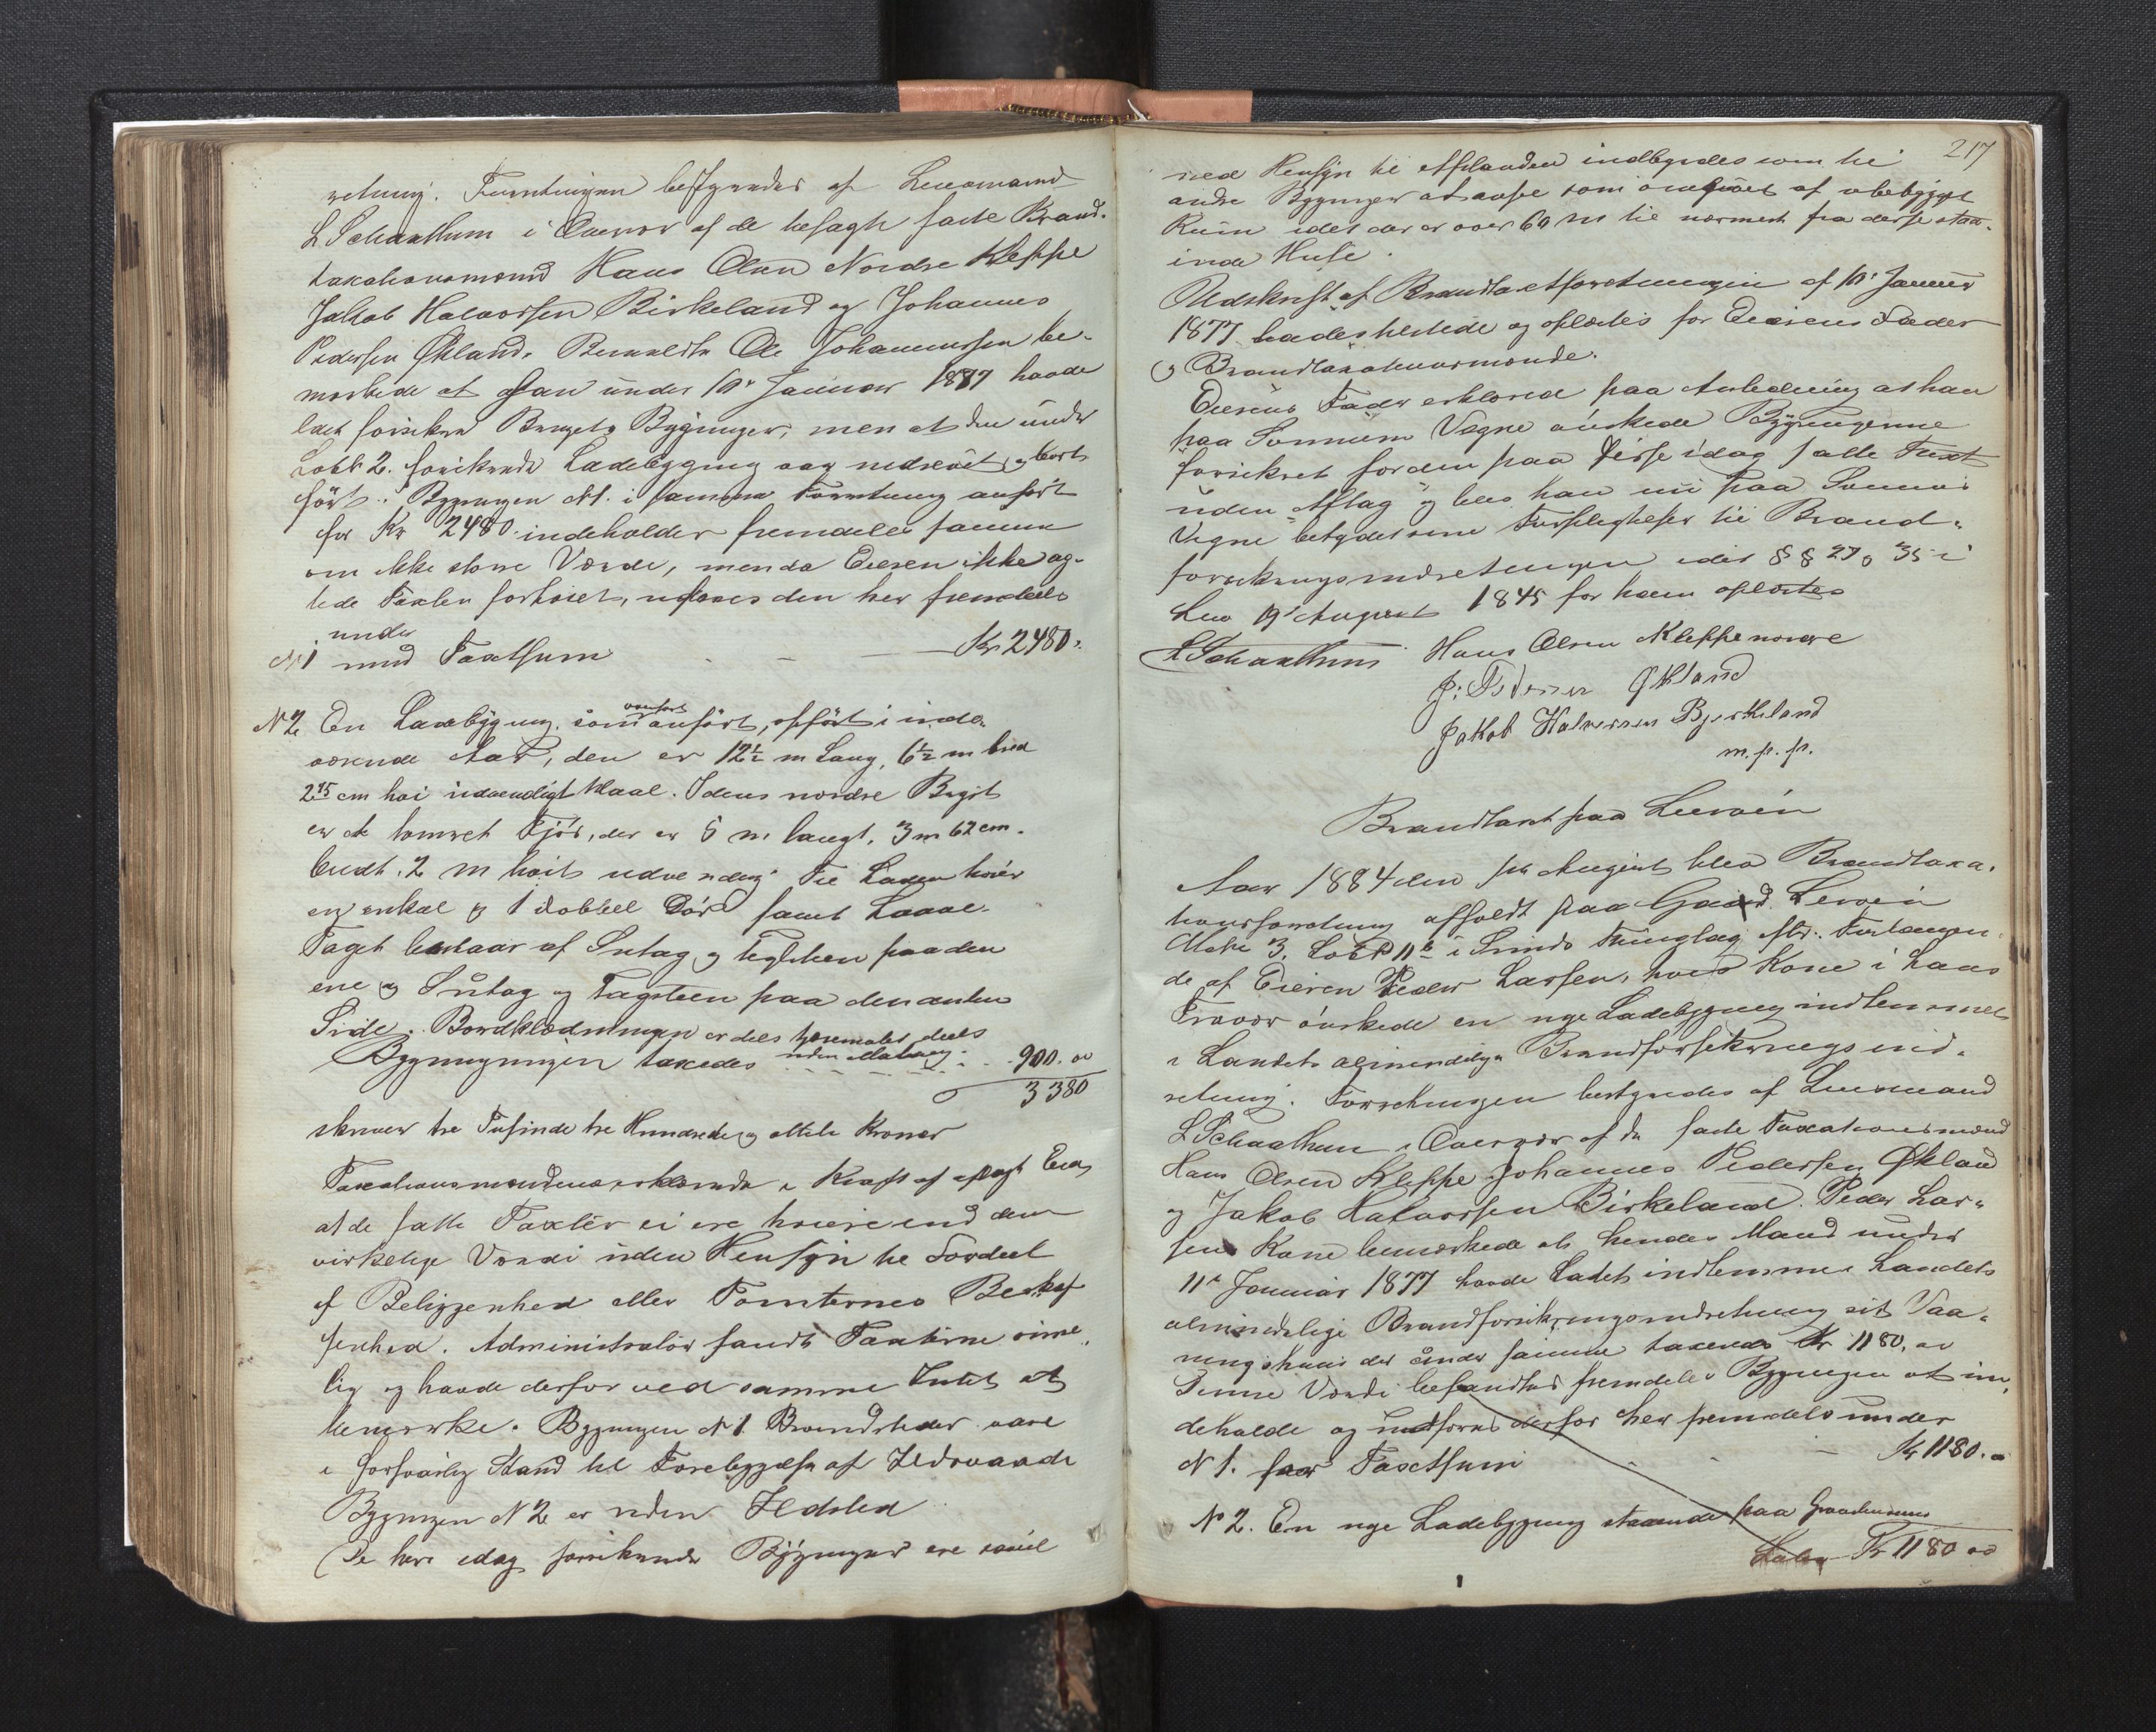 retning. Forretningen bestyredes af Lensmand
L Schaathun i Overvær af de besagte faste Brand-
taxationsmænd Hans Olsen Nordre Kleppe
Jakob Halvorsen Birkeland og Johannes
Pedersen Økland. Ole Johannessen be-
mærkede at Han under 10de Januar 1877 havde
ladt forsikre Brugets Bygninger, men at den under
Løbe No 2. forsikrede Ladebygning var nedrevet og bort-
ført. Bygningen No 1. i samme Forretning anført
for Kr 2480 indeholder fremdeles samme
om ikke større Værdi, men da Eieren ikke ag-
tede Taxten forhøiet, udføres den her fremdeles
under
No 1 med Taxtsum - - Kr 2480.
N 2 En Ladebygning, som anført, opført i inde-
værende Aar, den er 12½ m lang, 6½ m bred
2 75 cm høi udvendigt Maal. I dens nordre Bygt
er et tømret Fjøs, der er 5 m. langt, 3 m 62 cm.
bredt, 2 m høit udvendig. Til Laden hører
en enkel og 1 dobbel Dør samt Laave.
Taget bestaar af Sutag og Teglsten paa den
ene og Sutag og Tagsteen paa den anden
Side. Bordklædningen er dels tjæremalet, deels
uden Maling.
Bygningen taxedes - - - 900.00
3380
skriver tre Tusinde tre Hundrede og otteti Kroner
Taxationsmændene erklærede i Kraft af aflagt Eed,
at de satte Taxter ei ere høiere end den
virkelige Værdi uden Hensyn til Fordeel
af Beliggenhed eller Tomternes Beskaf-
fenhed. Administrator fandt Taxterne rime-
lig og havde derfor ved samme Intet at
bemærke. Bygningen N 1 Brandsteder vare
i forsvarlig Stand til Forebyggelse af Ildsvaade
Bygningen N 2 er uden Ildsted
De her idag forsikrede Bygninger ere saavel
217
med Hensyn til Afstanden indbyrdes som til
andre Bygninger at ansee som omgivet af ubebygget
Rum idet der er over 60 m til nærmest fra disse staa-
ende Huse.
Udskrift af Brandtaxtforretningen af 10de Januar
1877 havdes tilstede og oplæstes for Eierens Fader
og Brandtaxationsmænde.
Eierens Fader erklærede paa Anledning at han
paa Sønnens Vegne ønskede Bygningerne
forsikret for den paa disse idag satte Taxt
uden Afslag og blev han nu paa Sønnens
Vegne betydet sine Forpligtelser til Brand-
forsikringsindretningen idet §§ 27 og 35 i
Lov 19de August 1845 for ham oplæstes
L Schaathun Hans Olsen Kleppe nordre
J: Pedersen Økland
Jakob Halvorsen Bjerkeland
m. p. p.
Brandtaxt paa Lerøen
Aar 1884 den August blev Brandtaxa-
tionsforretning afholdt paa Gaard Lerøen
Matr 3, Løbe No 11 b i Sunds Thinglag efter Forlangen-
de af Eieren Peder Larsen, hvis Kone i hans
Fravær ønskede en nye Ladebygning indlemmet
i Landets almindelige Brandforsikringsind-
retning. Forretningen bestyredes af Lensmand
L Schaathun i Overvær af de faste Taxationsmænd
Hans Olsen Kleppe Johannes Pedersen Økland
og Jakob Halvorsen Birkeland. Peder Lar-
sens Kone bemærkede at hendes Mand under
11te Januar 1877 havde ladet indlemme i Landets
almindelige Brandforsikringsindretning sit Vaa-
ningshuus der under samme taxeredes Kr 1180,00
Denne Værdi befandtes fremdeles Bygningen at in-
deholde og indføres derfor her fremdeles under
N 1. for Taxtsum - - Kr 1180.00
N 2. En nye Ladebygning staaende paa Graasteensmur
Kr 1180 00